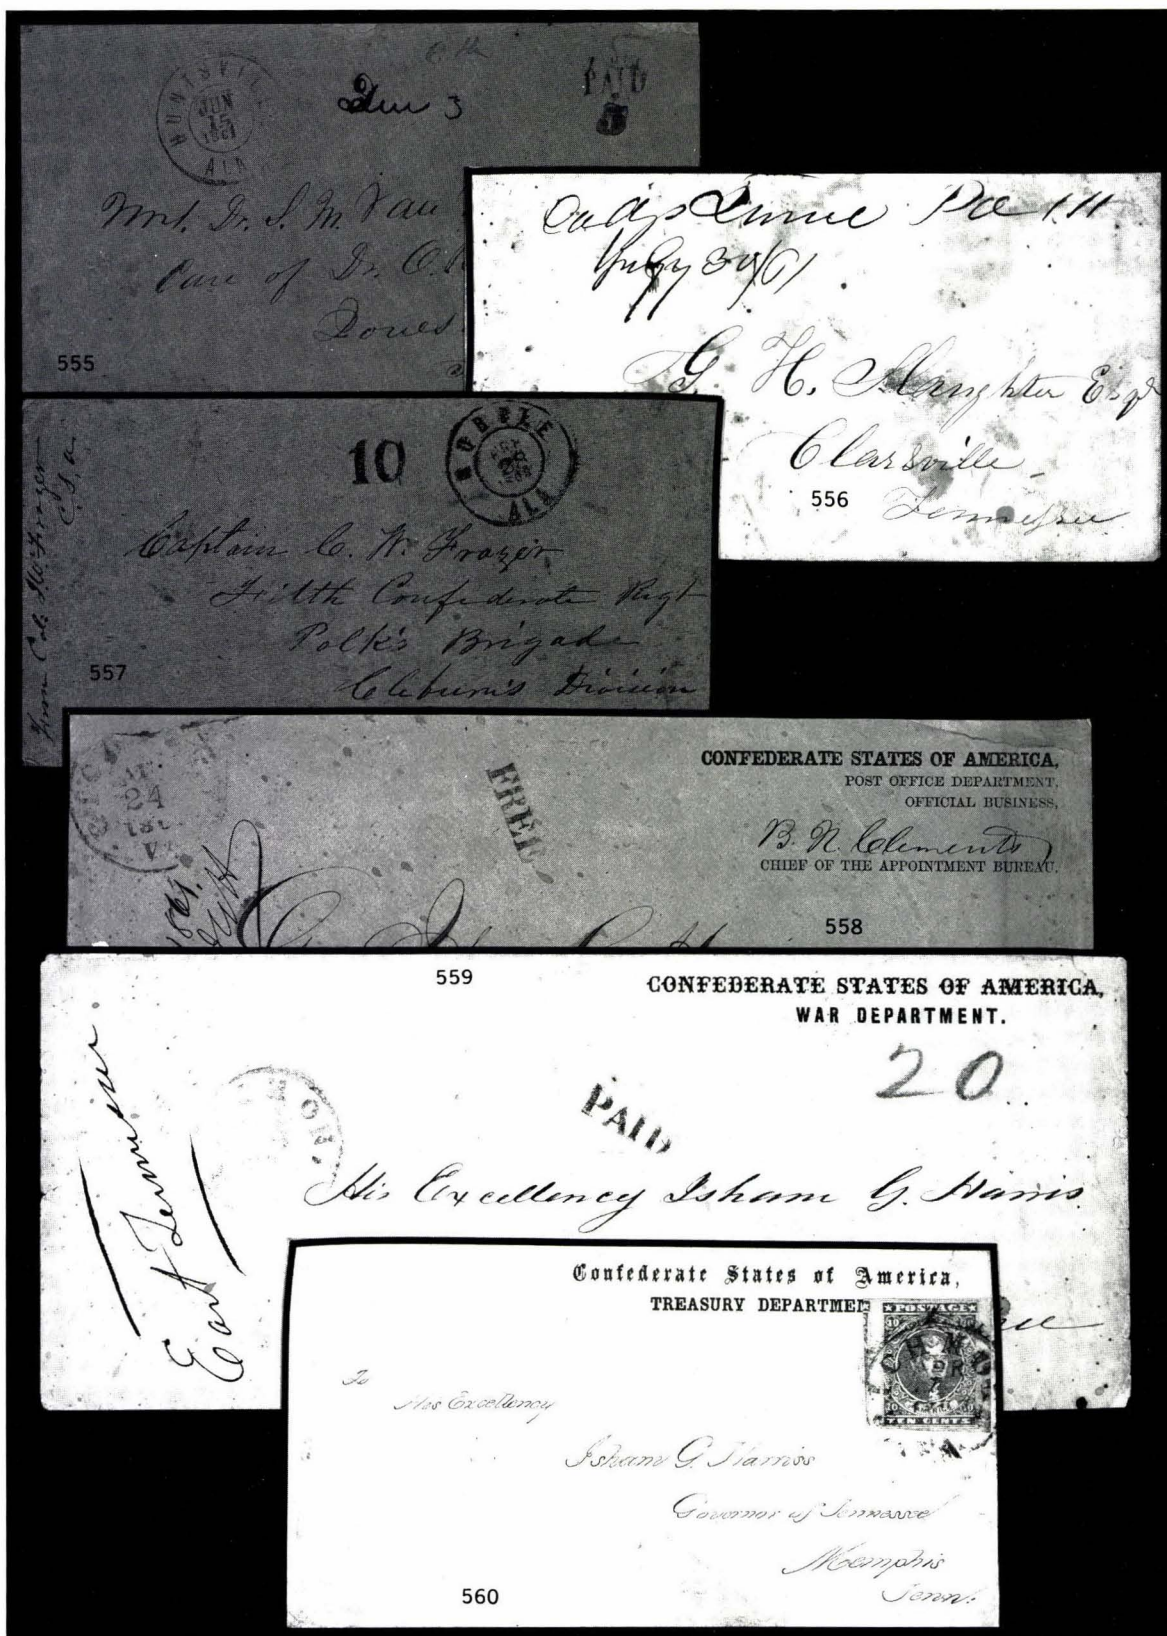 HUNTSVILLE
JUN
15
1861
ALA
Due 3
PAID
5
Mrs. Dr. S. M. Van
Care of Dr. O.
555
July 30/61
G. H. Slaughter Esqr
Clarsville
Tennessee
556
10
MOBILE
ALA
Captain C. W. Frazer
Fifth Confederate Regt
Polk's Brigade
Cleburn's Division
C.S.A.
557
24
FREE
CONFEDERATE STATES OF AMERICA,
POST OFFICE DEPARTMENT,
OFFICIAL BUSINESS,
B. N. Clements
CHIEF OF THE APPOINTMENT BUREAU.
1861.
558
559
CONFEDERATE STATES OF AMERICA,
WAR DEPARTMENT.
20
PAID
East Tennessee.
His Excellency Isham G. Harris
Confederate States of America,
TREASURY DEPARTMEN
POSTAGE
TEN CENTS
To
His Excellency
Isham G. Harriss
Governor of Tennessee
Memphis
Tenn.
560